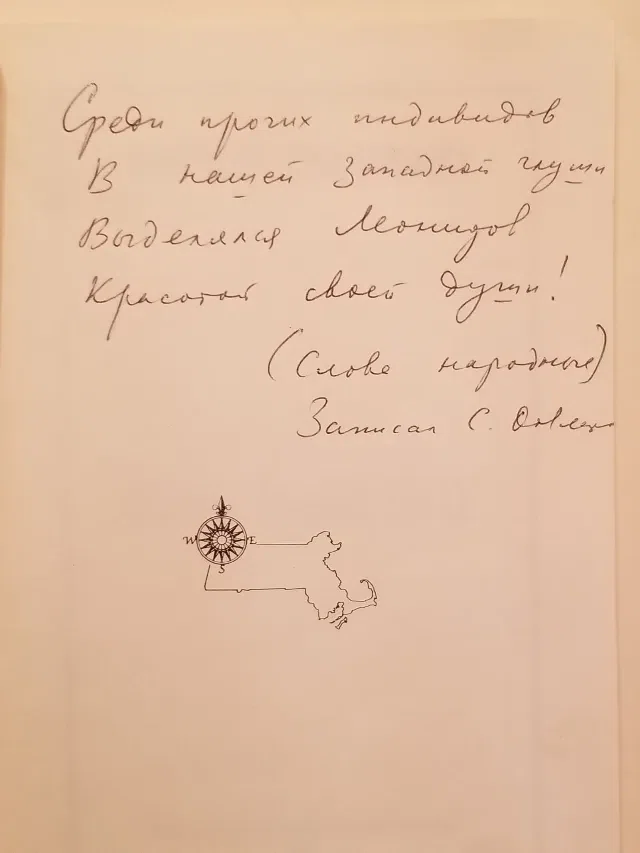 Среди прочих индивидов
В нашей Западной глуши
Выделялся Леонидов
Красотой своей души!
(Слова народные)
Записал С. Довлатов
W E
S